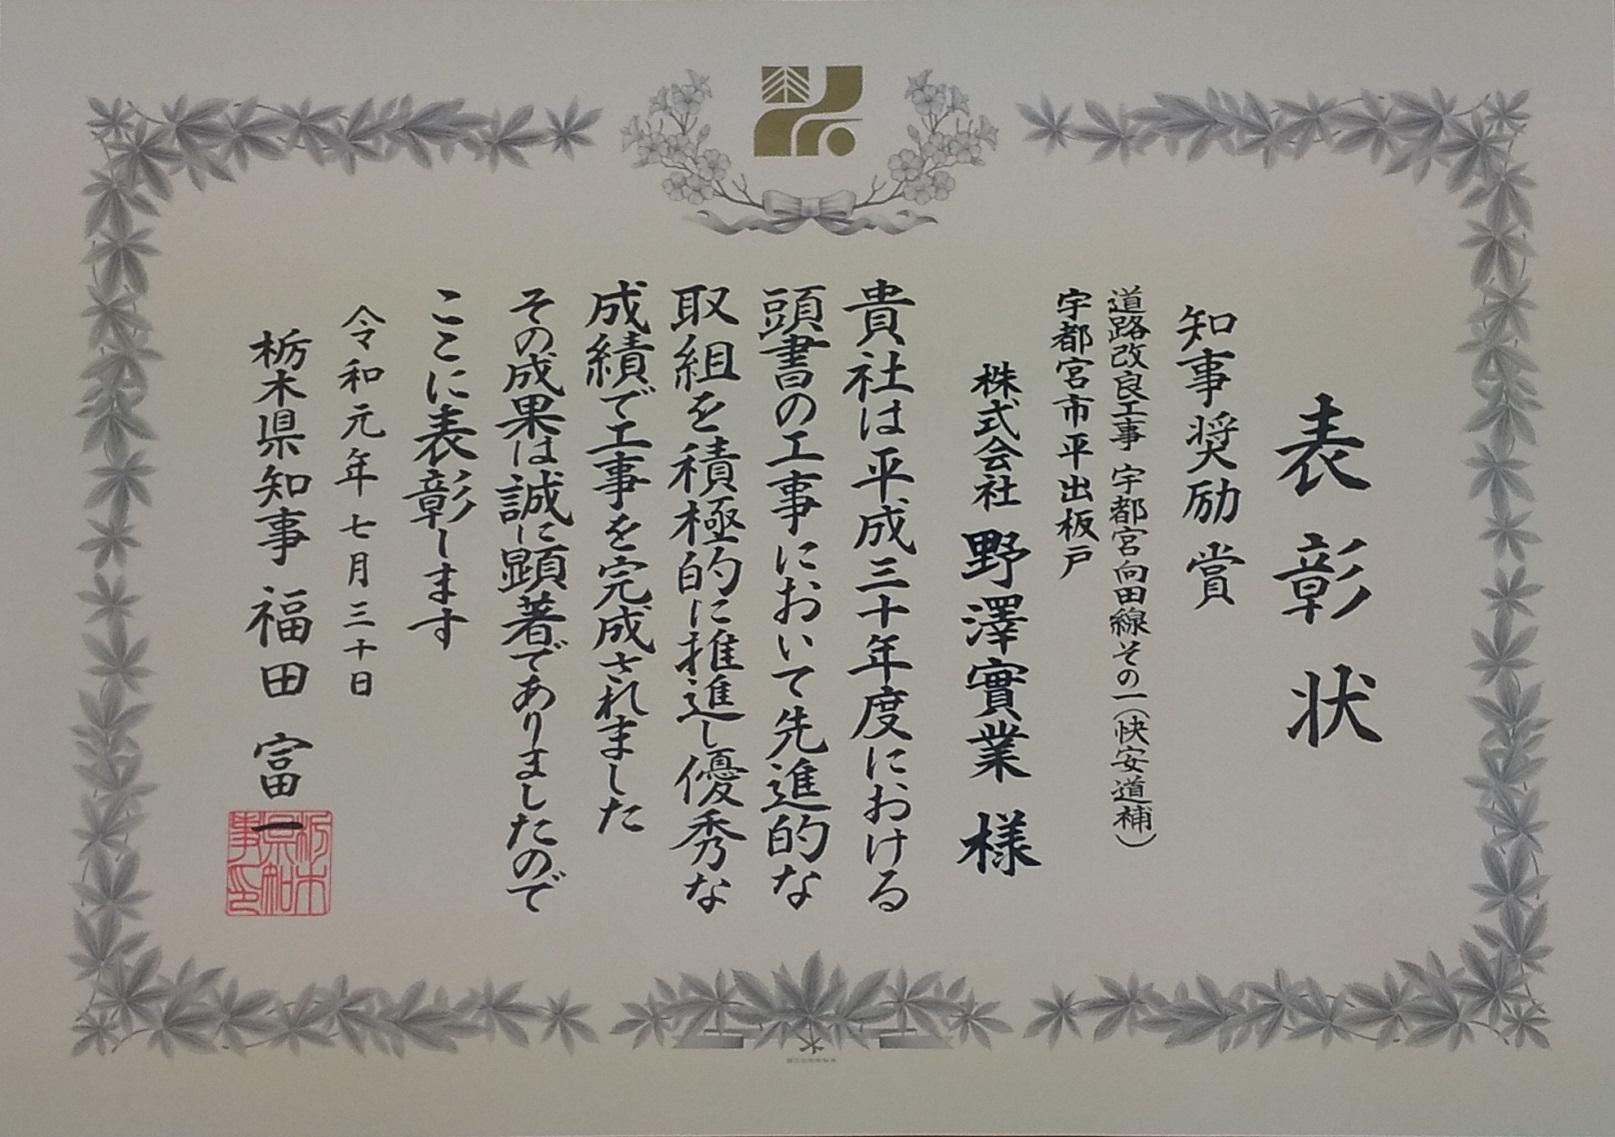 表彰状
知事奨励賞
道路改良工事 宇都宮向田線その一(快安道補)
宇都宮市平出板戸
株式会社 野澤實業 様
貴社は平成三十年度における
頭書の工事において先進的な
取組を積極的に推進し優秀な
成績で工事を完成されました
その成果は誠に顕著でありましたので
ここに表彰します
令和元年七月三十日
栃木県知事 福田 富一
栃木県知事印